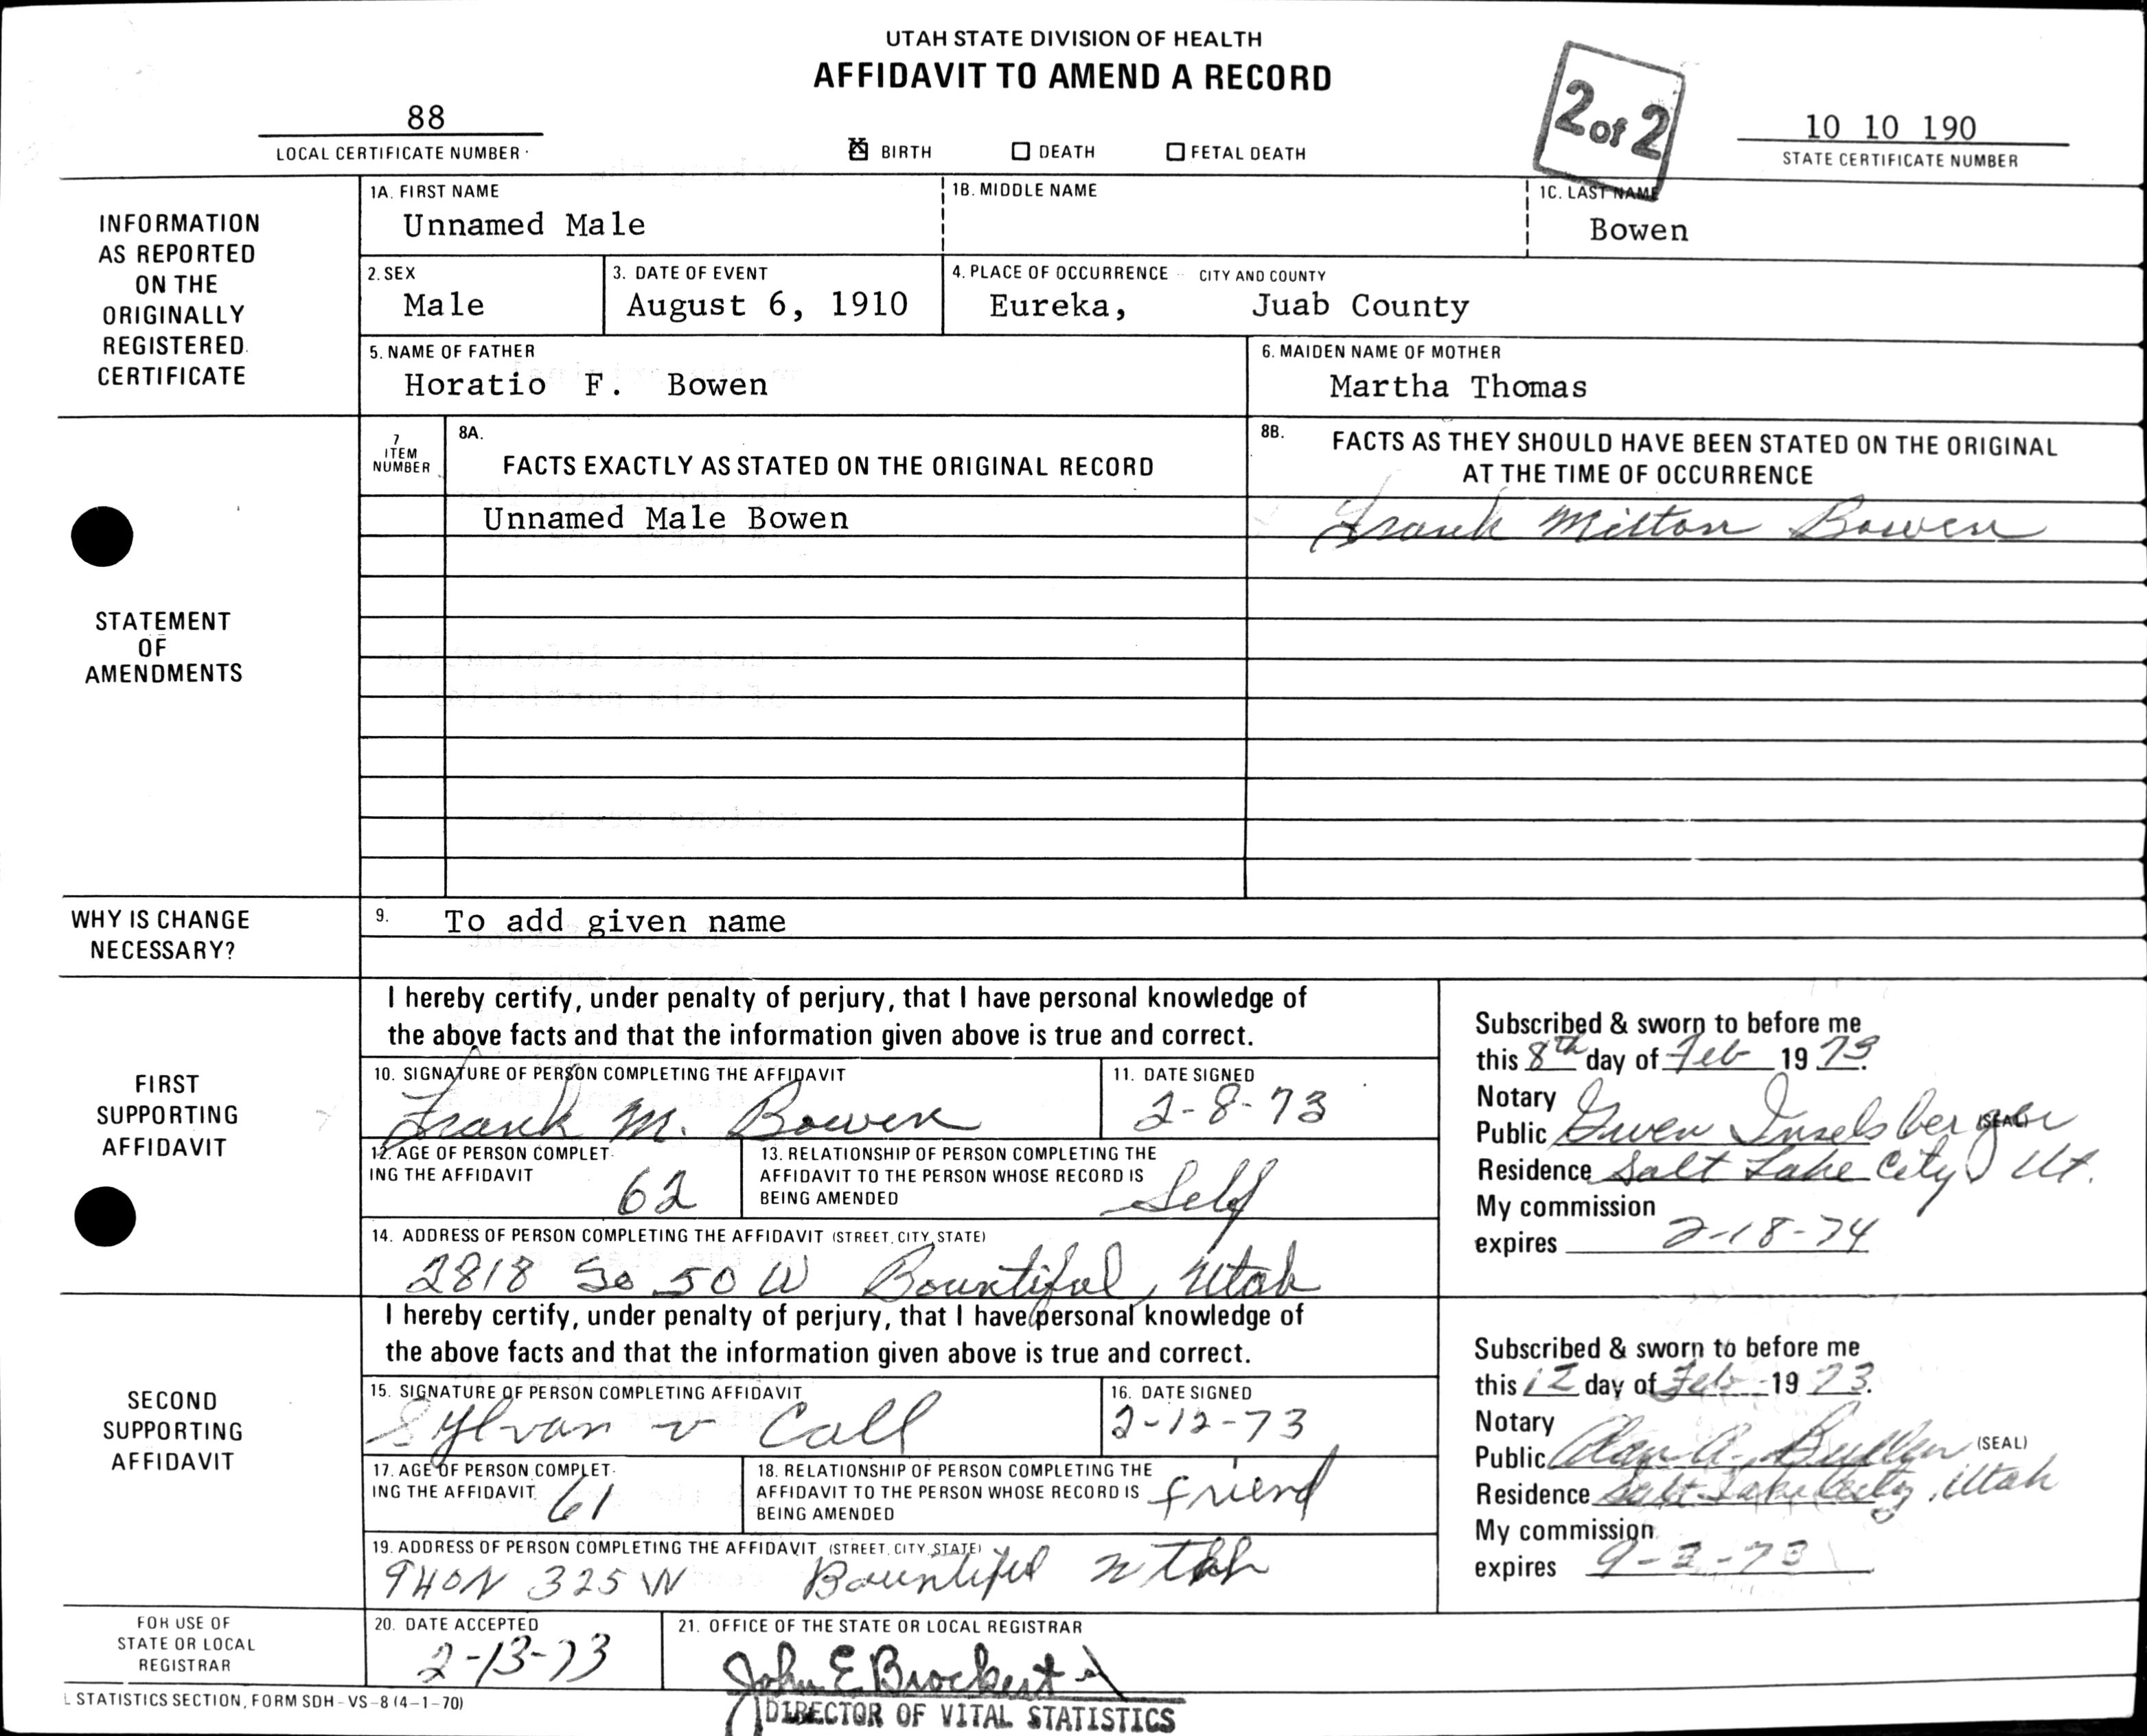 UTAH STATE DIVISION OF HEALTH
AFFIDAVIT TO AMEND A RECORD
2 of 2
88
LOCAL CERTIFICATE NUMBER
BIRTH DEATH FETAL DEATH
10 10 190
STATE CERTIFICATE NUMBER
INFORMATION
AS REPORTED
ON THE
ORIGINALLY
REGISTERED
CERTIFICATE
1A. FIRST NAME
Unnamed Male
1B. MIDDLE NAME
1C. LAST NAME
Bowen
2. SEX
Male
3. DATE OF EVENT
August 6, 1910
4. PLACE OF OCCURRENCE CITY AND COUNTY
Eureka, Juab County
5. NAME OF FATHER
Horatio F. Bowen
6. MAIDEN NAME OF MOTHER
Martha Thomas
STATEMENT
OF
AMENDMENTS
7
ITEM
NUMBER
8A.
FACTS EXACTLY AS STATED ON THE ORIGINAL RECORD
8B. FACTS AS THEY SHOULD HAVE BEEN STATED ON THE ORIGINAL
AT THE TIME OF OCCURRENCE
Unnamed Male Bowen
Frank Milton Bowen
WHY IS CHANGE
NECESSARY?
9. To add given name
FIRST
SUPPORTING
AFFIDAVIT
I hereby certify, under penalty of perjury, that I have personal knowledge of
the above facts and that the information given above is true and correct.
10. SIGNATURE OF PERSON COMPLETING THE AFFIDAVIT
Frank M. Bowen
11. DATE SIGNED
2-8-73
12. AGE OF PERSON COMPLET-
ING THE AFFIDAVIT
62
13. RELATIONSHIP OF PERSON COMPLETING THE
AFFIDAVIT TO THE PERSON WHOSE RECORD IS
BEING AMENDED
Self
14. ADDRESS OF PERSON COMPLETING THE AFFIDAVIT (STREET, CITY, STATE)
2818 So 50 W Bountiful, Utah
Subscribed & sworn to before me
this 8th day of Feb 1973.
Notary
Public Gwen Inselsberger (SEAL)
Residence Salt Lake City, Ut.
My commission
expires 2-18-74
SECOND
SUPPORTING
AFFIDAVIT
I hereby certify, under penalty of perjury, that I have personal knowledge of
the above facts and that the information given above is true and correct.
15. SIGNATURE OF PERSON COMPLETING AFFIDAVIT
Sylvan v Call
16. DATE SIGNED
2-12-73
17. AGE OF PERSON COMPLET-
ING THE AFFIDAVIT
61
18. RELATIONSHIP OF PERSON COMPLETING THE
AFFIDAVIT TO THE PERSON WHOSE RECORD IS
BEING AMENDED
friend
19. ADDRESS OF PERSON COMPLETING THE AFFIDAVIT (STREET, CITY, STATE)
940N 325W Bountiful Utah
Subscribed & sworn to before me
this 12 day of Feb 1973.
Notary
Public (SEAL)
Residence Salt Lake City, Utah
My commission
expires 9-2-73
FOR USE OF
STATE OR LOCAL
REGISTRAR
20. DATE ACCEPTED
2-13-73
21. OFFICE OF THE STATE OR LOCAL REGISTRAR
John E Brockert
DIRECTOR OF VITAL STATISTICS
L STATISTICS SECTION, FORM SDH-VS-8 (4-1-70)